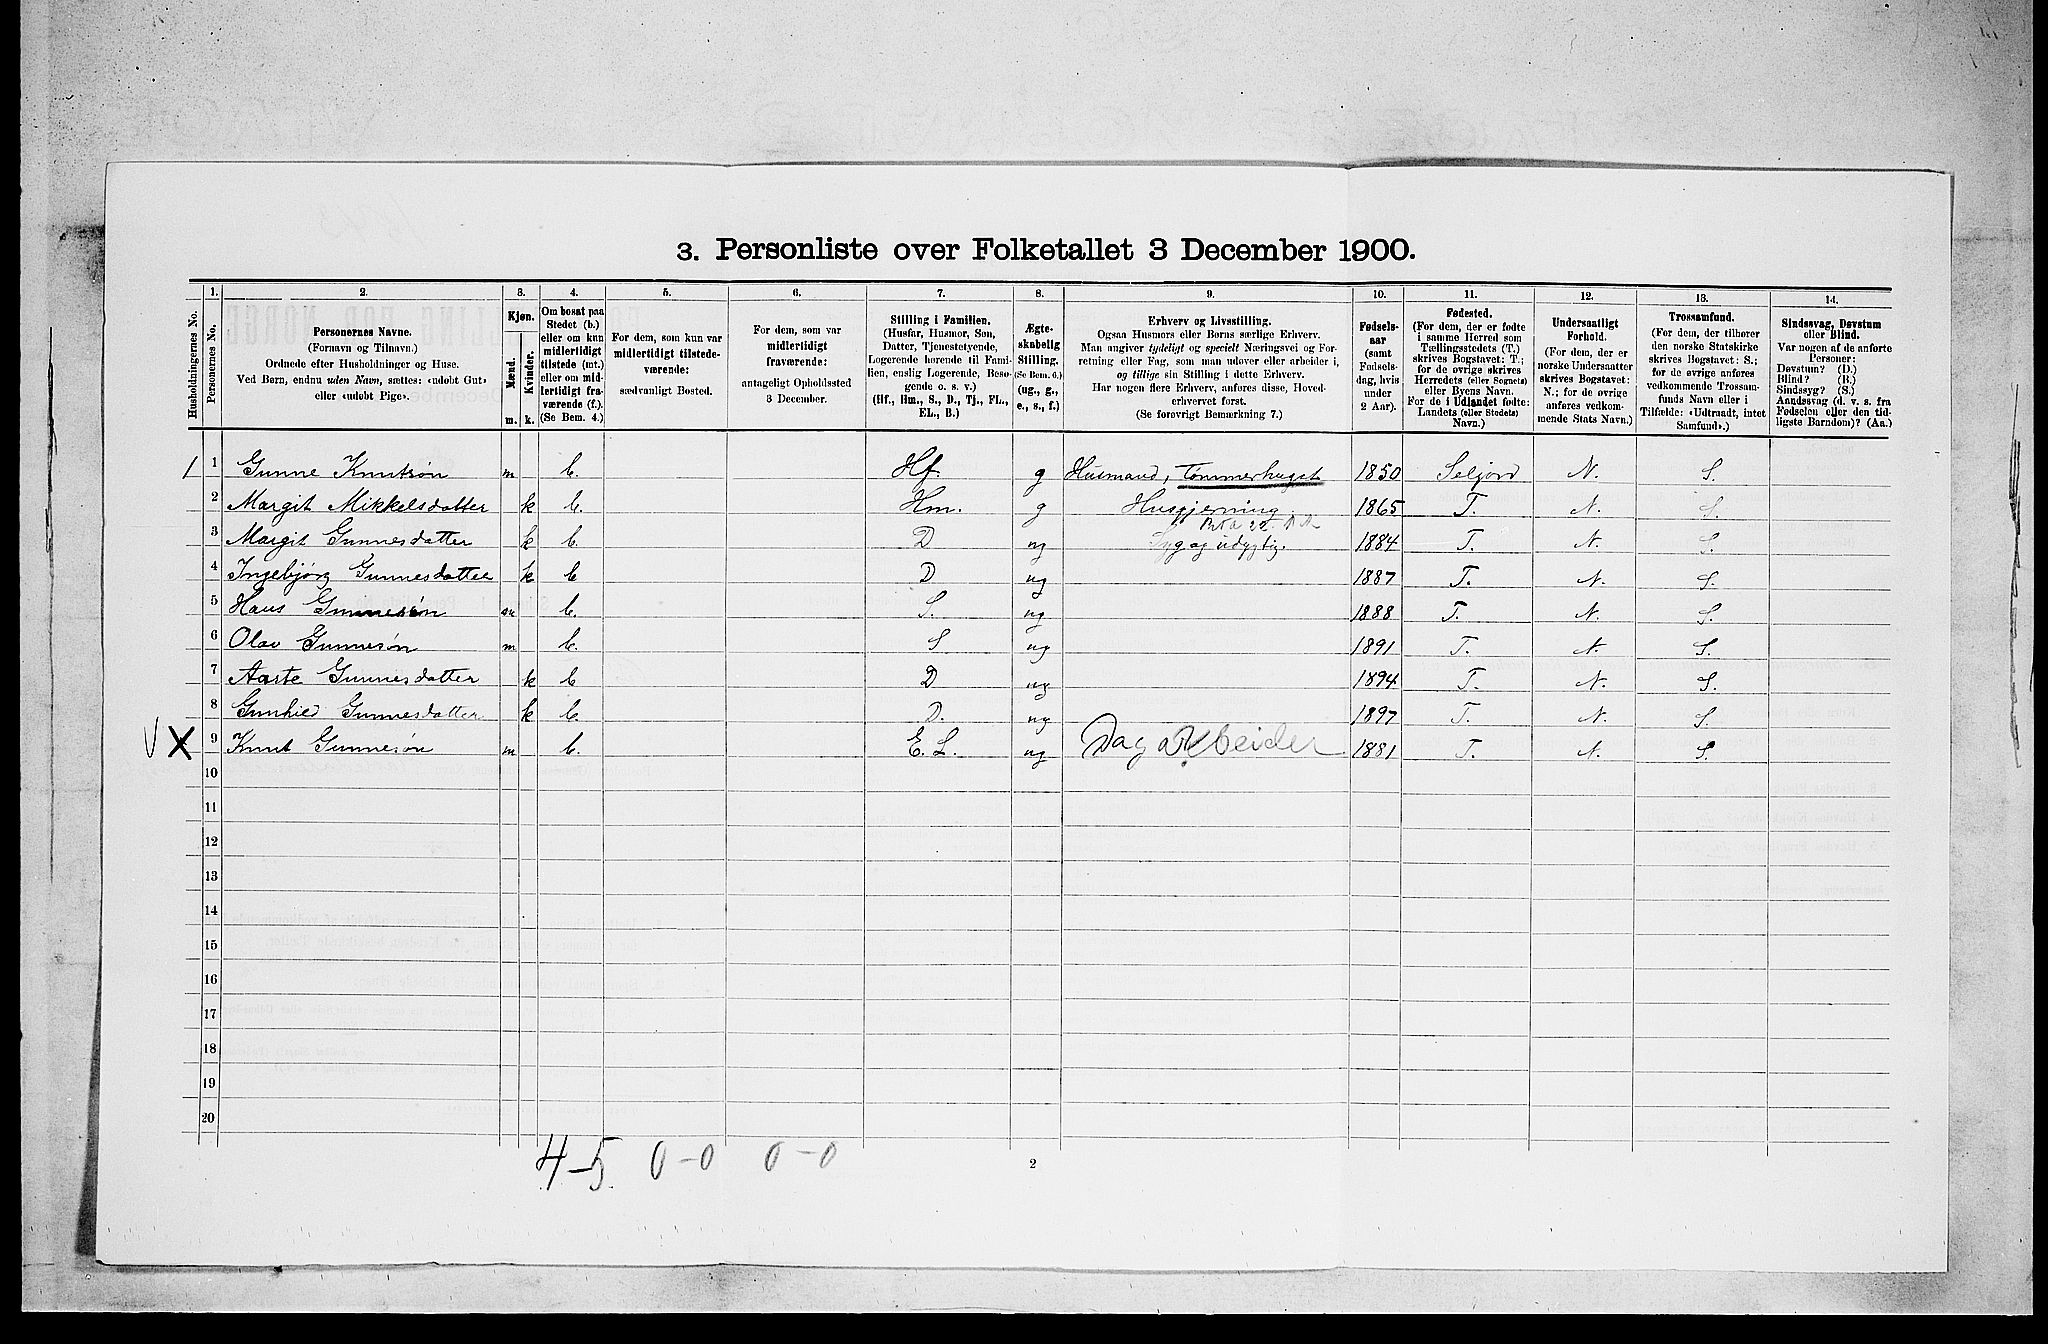 3. Personliste over Folketallet 3 December 1900.
1. 2. 3. 4. 5. 6. 7. 8. 9. 10. 11. 12. 13. 14.
Husholdningernes No.
Personernes No.
Personernes Navne.
(Fornavn og Tilnavn.)
Ordnede efter Husholdninger og Huse.
Ved Børn, endnu uden Navn, sættes: «udøbt Gut»
eller «udøbt Pige».
Kjøn.
Mænd.
Kvinder.
m. k.
Om bosat paa
Stedet (b.)
eller om kun
midlertidigt
tilstede (mt.)
eller om mid-
lertidigt fra-
værende (f.).
(Se Bem. 4.)
For dem, som kun var
midlertidigt tilstede-
værende:
sædvanligt Bosted.
For dem, som var
midlertidigt
fraværende:
antageligt Opholdssted
3 December.
Stilling i Familien.
(Husfar, Husmor, Søn,
Datter, Tjenestetyende,
Logerende hørende til Fami-
lien, enslig Logerende, Besø-
gende o. s. v.)
(Hf., Hm., S., D., Tj., FL.,
EL., B.)
Ægte-
skabelig
Stilling.
(Se Bem. 6.)
(ug., g.,
e., s., f.)
Erhverv og Livsstilling.
Ogsaa Husmors eller Børns særlige Erhverv.
Man angiver tydeligt og specielt Næringsvei og For-
retning eller Fag, som man udøver eller arbeider i,
og tillige sin Stilling i dette Erhverv.
Har nogen flere Erhverv, anføres disse, Hoved-
erhvervet først.
(Se forøvrigt Bemærkning 7.)
Fødsels-
aar
(samt
Fødsels-
dag, hvis
under
2 Aar).
Fødested.
(For dem, der er fødte
i samme Herred som
Tællingsstedets (T.)
skrives Bogstavet: T.;
for de øvrige skrives
Herredets (eller Sognets)
eller Byens Navn.
For de i Udlandet fødte:
Landets (eller Stedets)
Navn.)
Undersaatligt
Forhold.
(For dem, der er
norske Undersaatter
skrives Bogstavet:
N.; for de øvrige
anføres vedkom-
mende Stats Navn.)
Trossamfund.
(For dem, der tilhører
den norske Statskirke
skrives Bogstavet: S.;
for de øvrige anføres
vedkommende Trossam-
funds Navn eller i
Tilfælde: «Udtraadt, intet
Samfund».)
Sindssvag, Døvstum
eller Blind.
Var nogen af de anførte
Personer:
Døvstum? (D.)
Blind? (B.)
Sindssyg? (S.)
Aandssvag (d. v. s. fra
Fødselen eller den tid-
ligste Barndom)? (Aa.)
1 1 Gunne Knutsøn m b. Hf. g Husmand, Tømmerhuget 1850 Seljord N. S.
2 Margit Mikkelsdatter k b. Hm. g Husgjerning 1865 T. N. S.
3 Margit Gunnesdatter k b. D ug Syg og udygtig. 1884 T. N. S.
4 Ingebjørg Gunnesdatter k b D ug 1887 T. N. S.
5 Hans Gunnesøn m b. S. ug 1888 T. N. S.
6 Olav Gunnesøn m b. S ug 1891 T. N. S.
7 Aaste Gunnesdatter k b D ug 1894 T. N. S.
8 Gunhild Gunnesdatter k b. D. ug 1897 T. N. S.
V X 9 Knut Gunnesøn m b. E. L. ug Dagarbeider 1881 T. N. S.
10
11
12
13
14
15
16
17
18
19
20
4-5 0-0 0-0
2